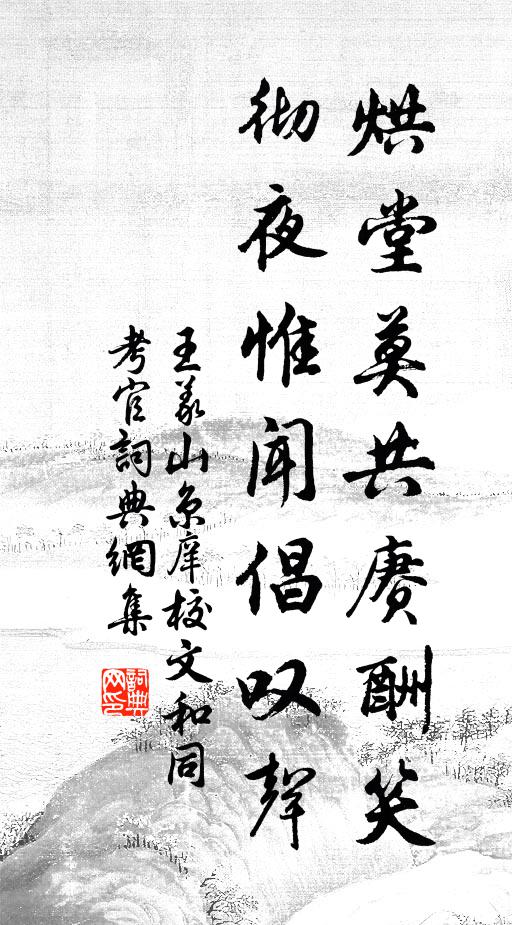 烘堂莫共赓酬笑
彻夜惟闻倡叹聲
王义山京庠校文和同
考官詞典網集
詞典网印